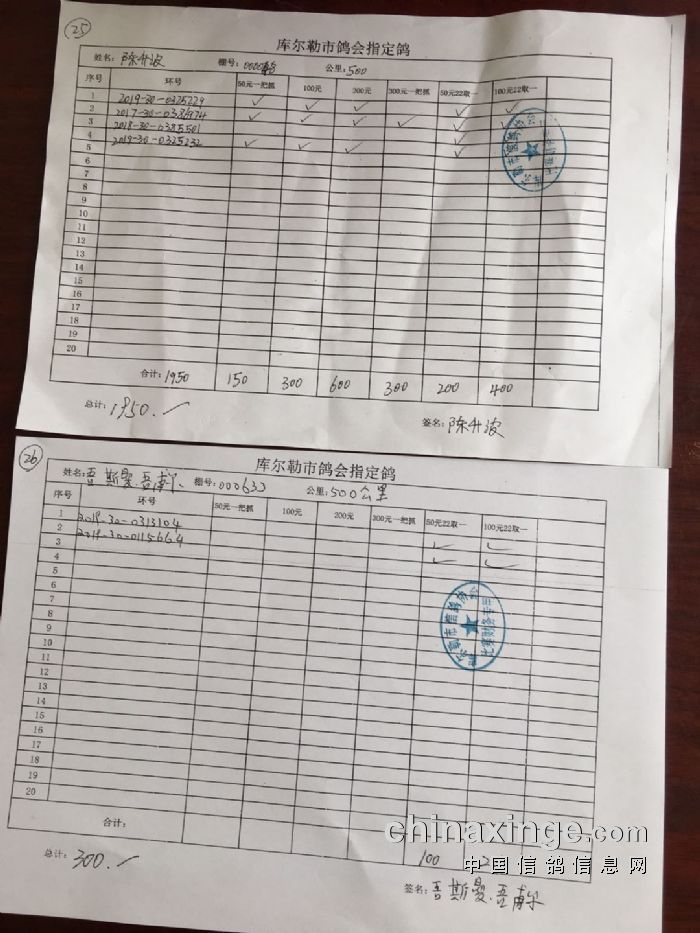 25
库尔勒市鸽会指定鸽
姓名: 陈升波 棚号: 公里: 500
序号 环号 50元一把抓 100元 200元 300元一把抓 50元22取一 100元22取一
1 2019-30-0325229 ✓ ✓ ✓ ✓ ✓
2 ✓ ✓ ✓ ✓ ✓ ✓
3 2018-30-0385501 ✓ ✓
4 2019-30-0325232 ✓ ✓ ✓ ✓
5
6
7
8
9
10
11
12
13
14
15
16
17
18
19
20
合计: 1950 150 300 600 300 200 400
总计: 1950.
签名: 陈升波
26
库尔勒市鸽会指定鸽
姓名: 吾斯曼.吾甫尔. 棚号: 000633 公里: 500公里
序号 环号 50元一把抓 100元 200元 300元一把抓 50元22取一 100元22取一
1 2019-30-0313104 ✓ ✓
2 2019-30-0115664 ✓ ✓
3
4
5
6
7
8
9
10
11
12
13
14
15
16
17
18
19
20
合计: 100 2
总计: 300.
签名: 吾斯曼.吾甫尔
chinaxinge.com
中国信鸽信息网